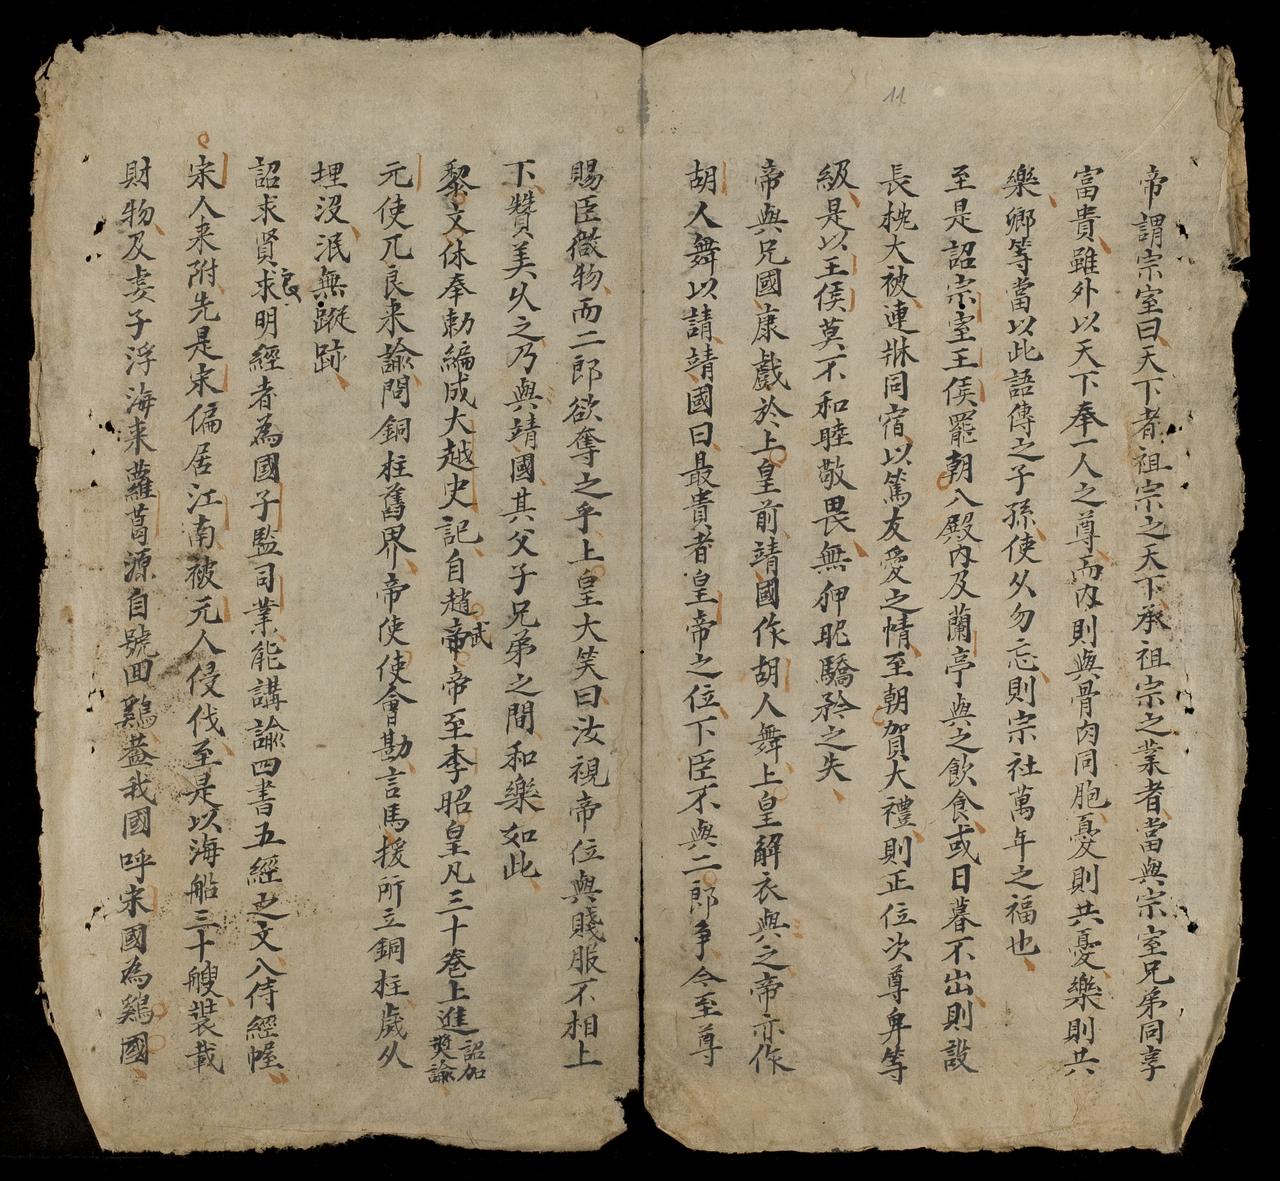 11
帝謂宗室曰天下者祖宗之天下承祖宗之業者當與宗室兄弟同享
富貴雖外以天下奉一人之尊而内則與骨肉同胞憂則共憂樂則共
樂卿等當以此語傳之子孫使久勿忘則宗社萬年之福也
至是詔宗室王侯罷朝入殿内及蘭亭與之飲食或日暮不出則設
長枕大被連牀同宿以篤友愛之情至朝賀大禮則正位次尊卑等
級是以王侯莫不和睦敬畏無狎眤驕矜之失
帝與兄國康戲於上皇前靖國作胡人舞上皇解衣與之帝亦作
胡人舞以請靖國曰最貴者皇帝之位下臣不與二郎争今至尊
賜臣微物而二郎欲奪之乎上皇大笑曰汝視帝位與賤服不相上
下贊美久之乃與靖國其父子兄弟之間和樂如此
黎文休奉勅編成大越史記自趙武帝帝至李昭皇凡三十巻上進詔加奬諭
元使兀良来諭問銅柱舊界帝使使會勘言馬援所立銅柱歲久
埋没泯無蹤跡
詔求賢良求明經者為國子監司業能講諭四書五經之文入侍經幄
宋人来附先是宋偏居江南被元人侵伐至是以海船三十艘裝載
財物及妻子浮海来蘿葛源自號回鷄葢我國呼宋國為鷄國